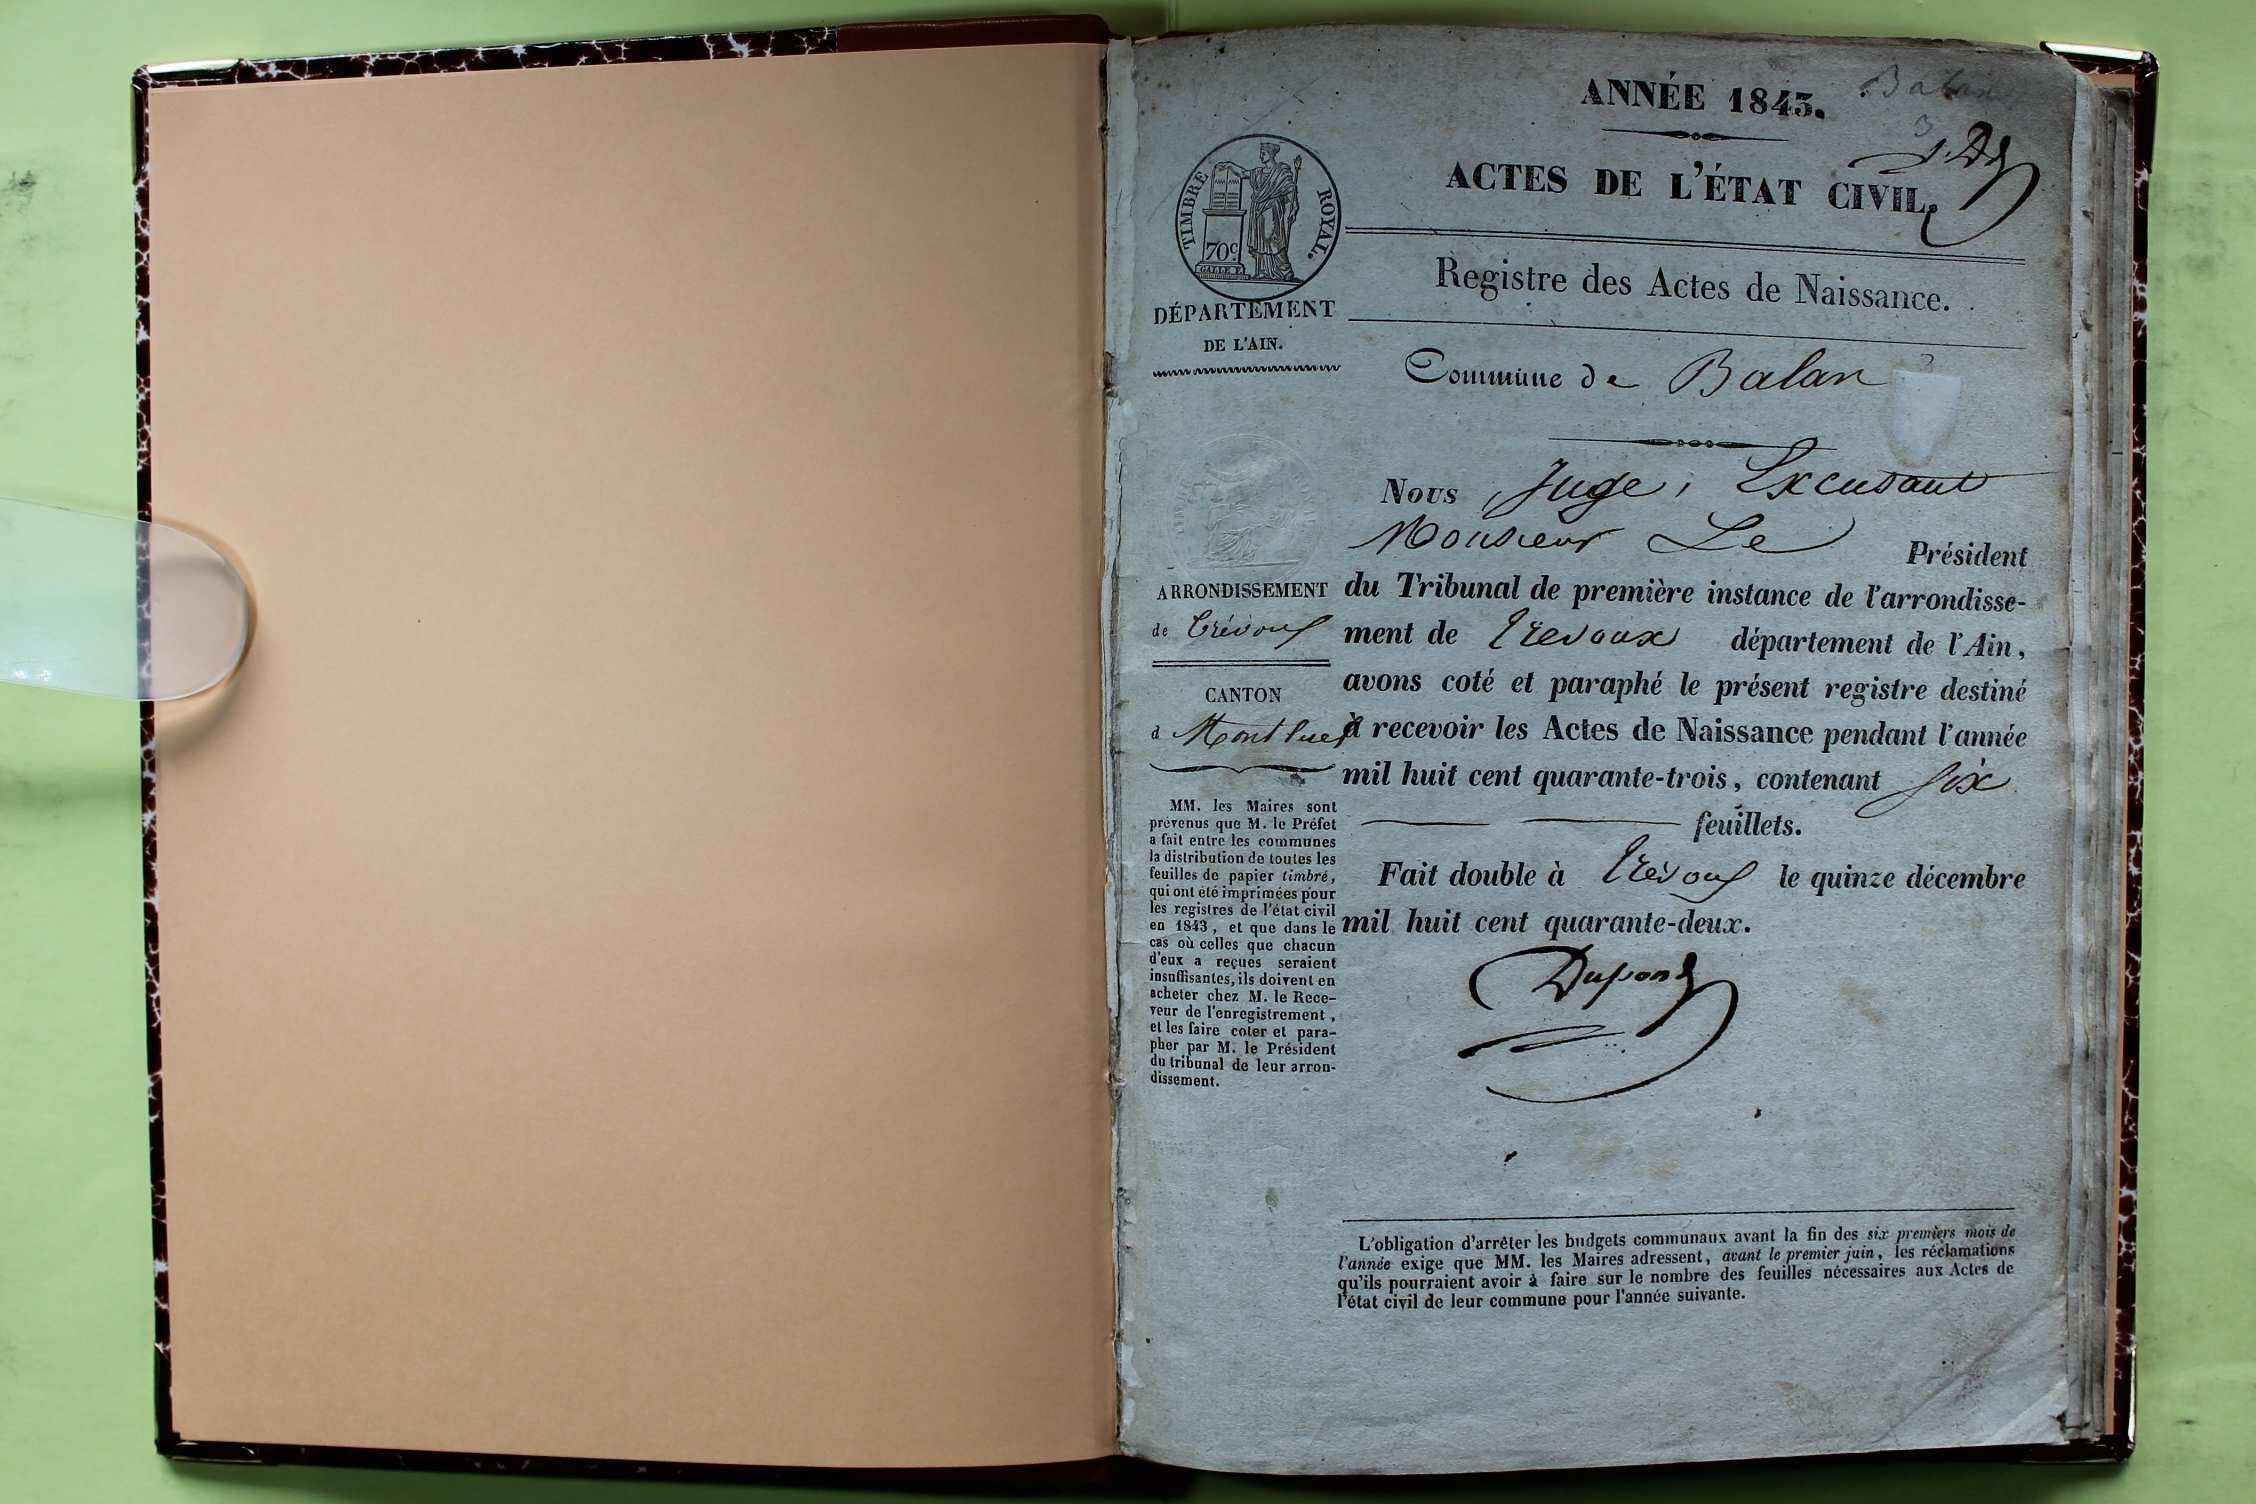 Balan
ANNÉE 1843.
3
ACTES DE L'ÉTAT CIVIL.
TIMBRE ROYAL.
70c.
Registre des Actes de Naissance.
DÉPARTEMENT
DE L'AIN.
Commune de Balan
Nous Juge, Excusant
Monsieur Le Président
ARRONDISSEMENT
de Trévoux
CANTON
d Montluel
MM. les Maires sont
prévenus que M. le Préfet
a fait entre les communes
la distribution de toutes les
feuilles de papier timbré,
qui ont été imprimées pour
les registres de l'état civil
en 1843, et que dans le
cas où celles que chacun
d'eux a reçues seraient
insuffisantes, ils doivent en
acheter chez M. le Rece-
veur de l'enregistrement,
et les faire coter et para-
pher par M. le Président
du tribunal de leur arron-
dissement.
du Tribunal de première instance de l'arrondisse-
ment de Trevoux département de l'Ain,
avons coté et paraphé le présent registre destiné
à recevoir les Actes de Naissance pendant l'année
mil huit cent quarante-trois, contenant six
feuillets.
Fait double à Trévoux le quinze décembre
mil huit cent quarante-deux.
Dupond
L'obligation d'arrêter les budgets communaux avant la fin des six premiers mois de
l'année exige que MM. les Maires adressent, avant le premier juin, les réclamations
qu'ils pourraient avoir à faire sur le nombre des feuilles nécessaires aux Actes de
l'état civil de leur commune pour l'année suivante.